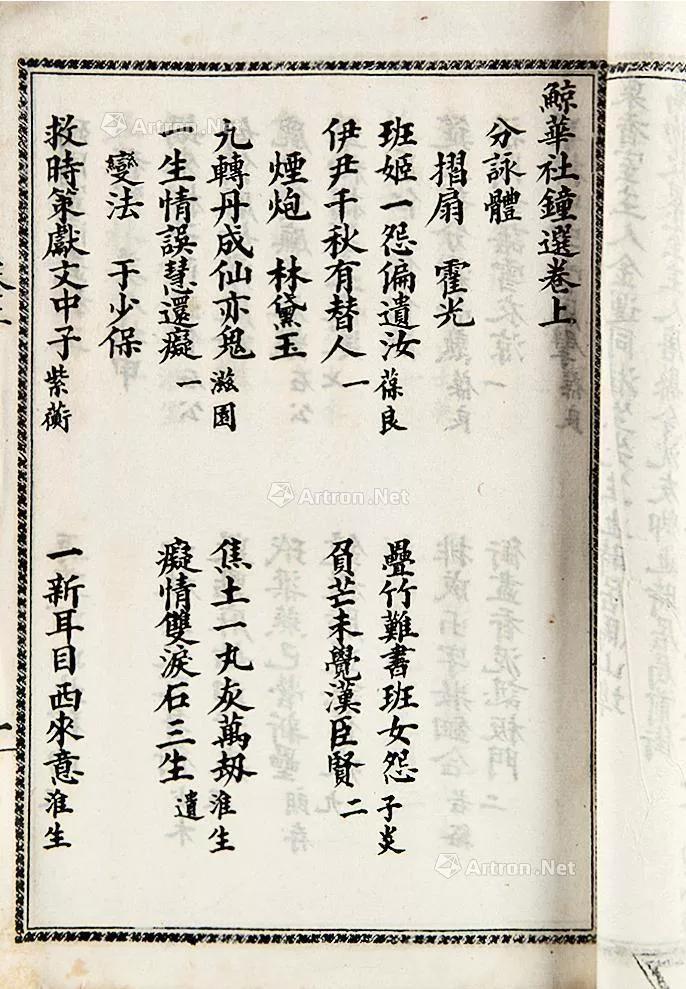 鯨華社鐘選卷上
分詠體
摺扇　霍光
班姬一怨偏遺汝　葆良
疊竹難書班女怨　子炎
伊尹千秋有替人　一
負芒未覺漢臣賢　二
煙炮　林黛玉
九轉丹成仙亦鬼　滋園
焦土一丸灰萬劫　淮生
一生情誤慧還癡　一
癡情雙淚石三生　遺
變法　于少保
救時策獻文中子　紫蘅
一新耳目西來意　淮生
Artron.Net
Artron.Net
Artron.Net